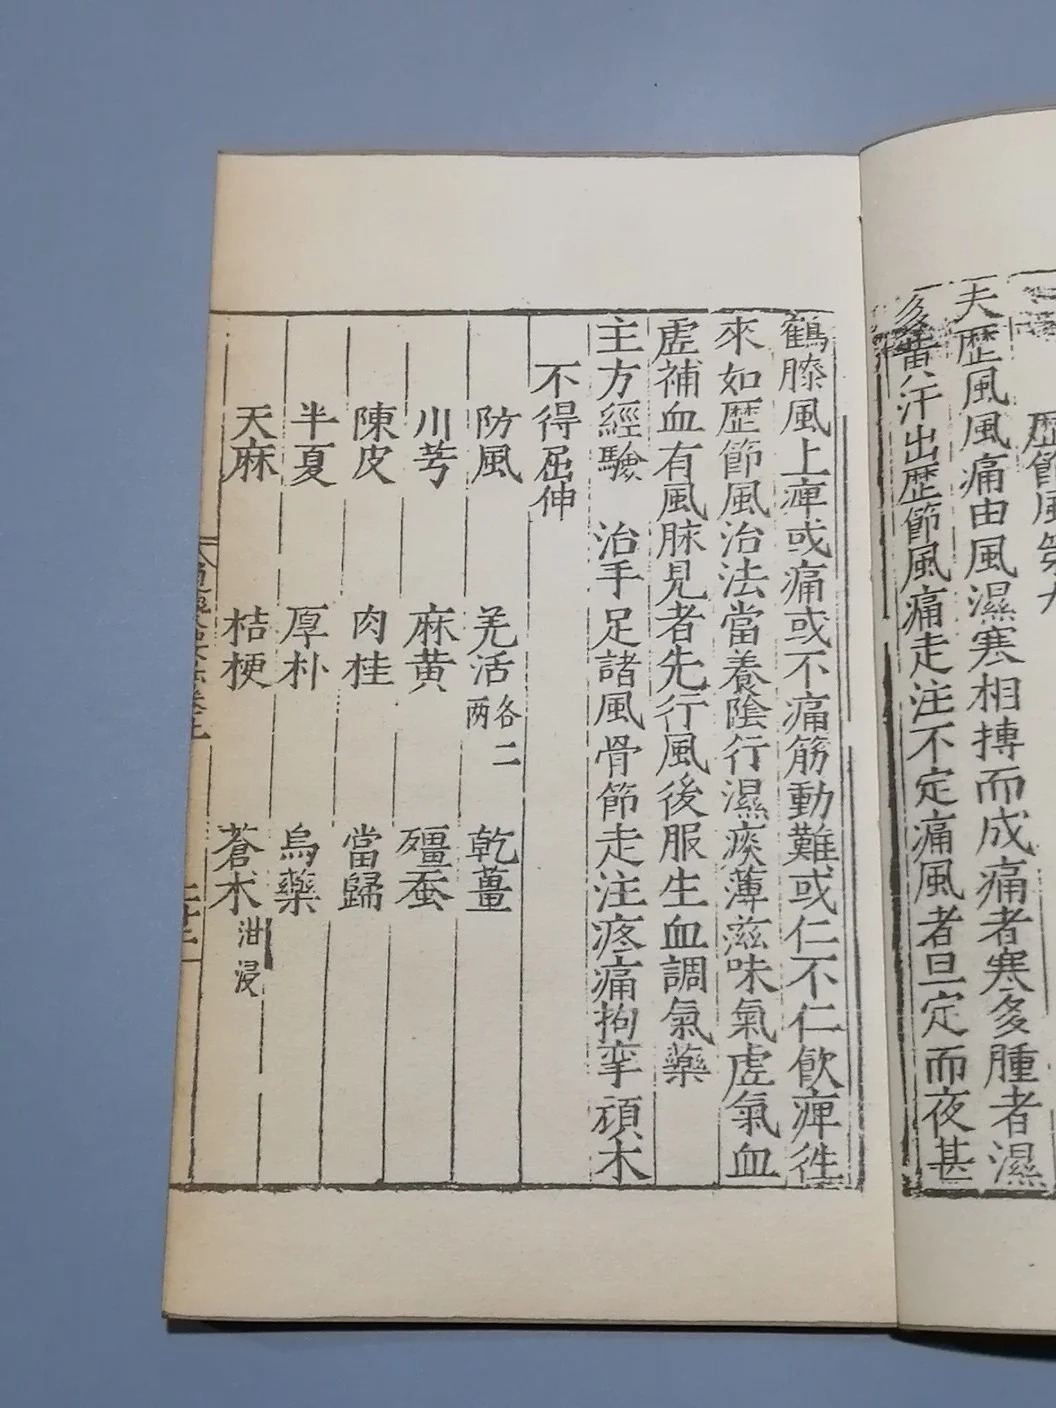 歷節風第九
夫歷風風痛由風濕寒相搏而成痛者寒多腫者濕
多黃汗出歷節風痛走注不定痛風者旦定而夜甚
鶴膝風上痺或痛或不痛筋動難或仁不仁飲痺徃
來如歷節風治法當養陰行濕痰薄滋味氣虛氣血
虛補血有風脉見者先行風後服生血調氣藥
主方經驗 治手足諸風骨節走注疼痛拘挛頑木
不得屈伸
防風 羌活各二两 乾薑
川芎 麻黃 殭蚕
陳皮 肉桂 當歸
半夏 厚朴 烏藥
天麻 桔梗 蒼朮泔浸